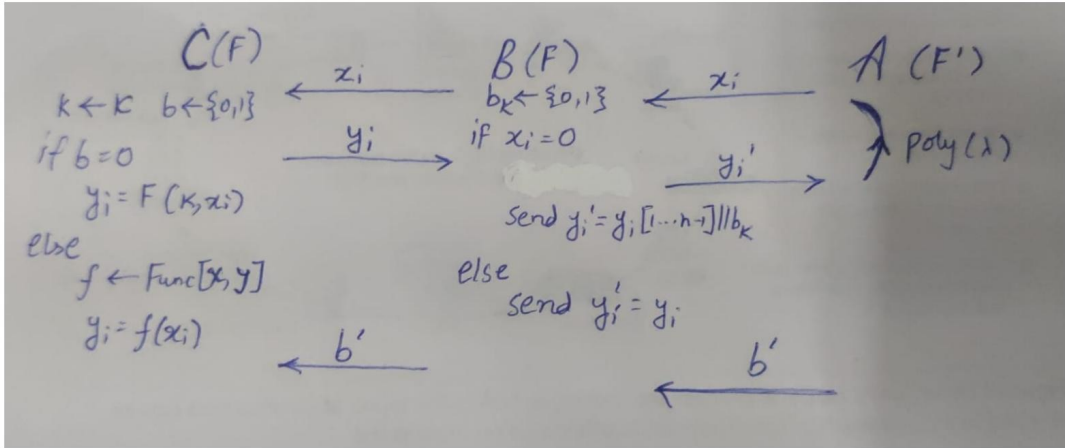 C(F)
k ← K b ← {0,1}
if b = 0
y_i = F(k, x_i)
else
f ← Func[x, y]
y_i = f(x_i)
x_i
y_i
b'
B(F)
b_k ← {0,1}
if x_i = 0
send y_i' = y_i[1...n-1]||b_k
else
send y_i' = y_i
x_i
y_i'
b'
A(F')
poly(λ)